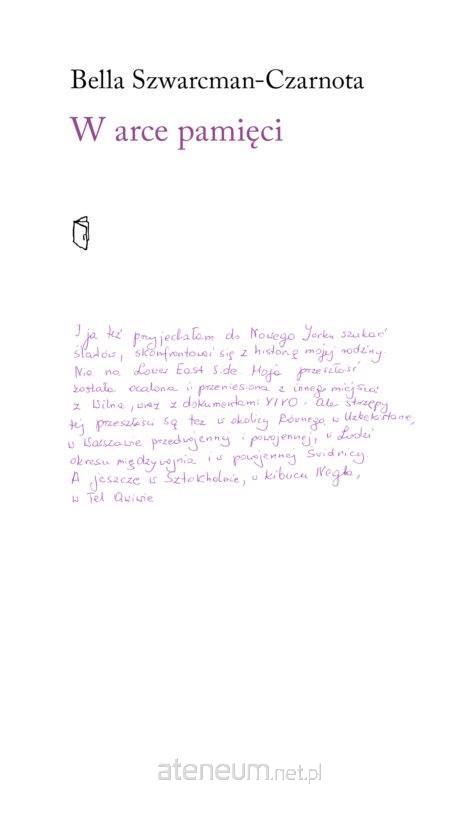 Bella Szwarcman-Czarnota
W arce pamięci
I ja też przyjechałam do Nowego Jorku szukać
śladów, skonfrontować się z historią mojej rodziny.
Nie na Lower East Side. Moja przeszłość
została ocalona i przeniesiona z innego miejsca
z Wilna, wraz z dokumentami YIVO. Ale strzępy
tej przeszłości są też w okolicy Równego, w Uzbekistanie,
w Warszawie przedwojennej i powojennej, w Łodzi
okresu międzywojnia i w powojennej Świdnicy
A jeszcze w Sztokholmie, w kibucu Negba,
w Tel Awiwie
ateneum.net.pl